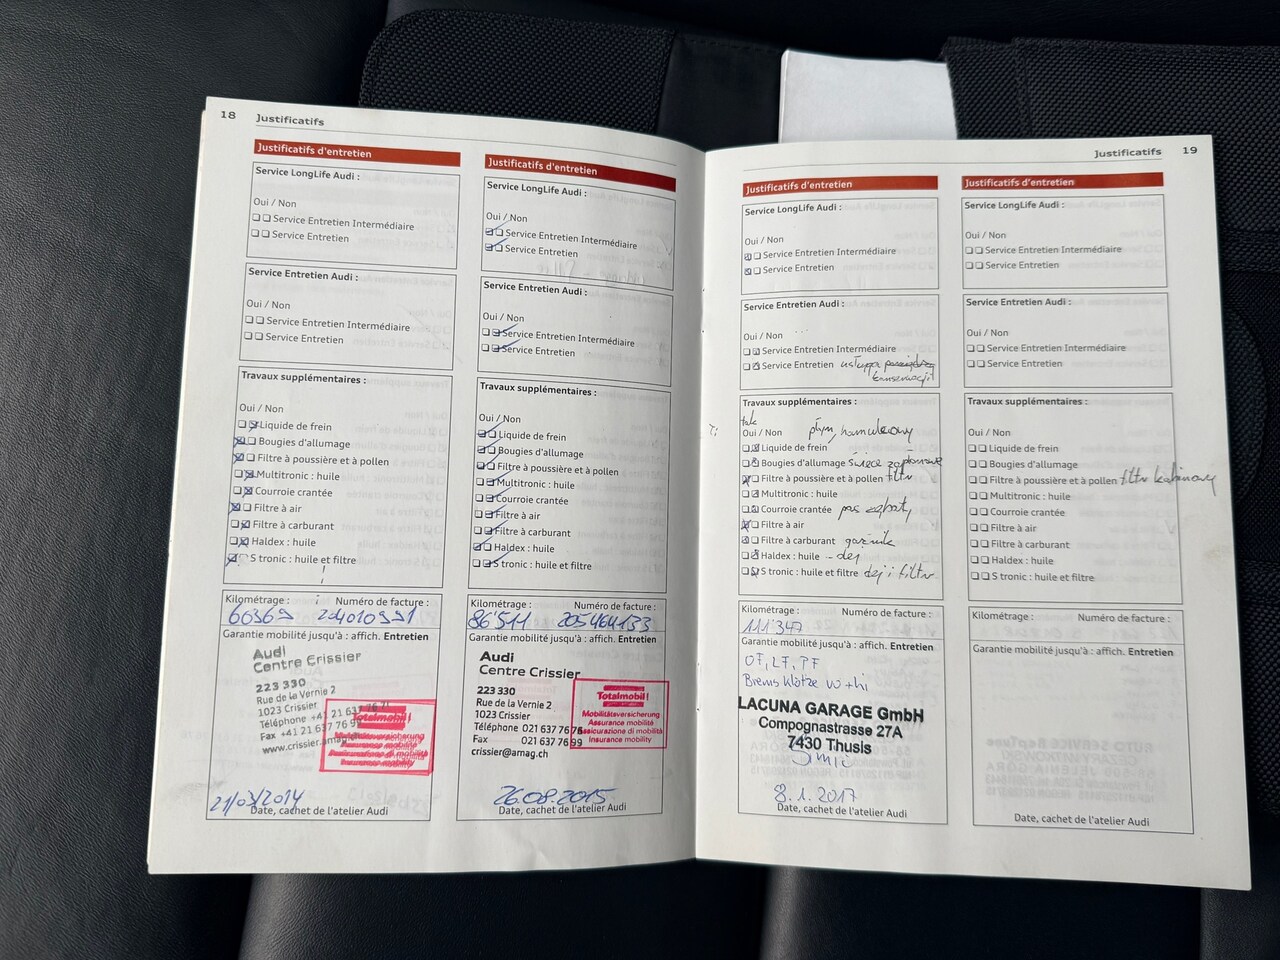 18 Justificatifs
Justificatifs d'entretien
Service LongLife Audi :
Oui / Non
Service Entretien Intermédiaire
Service Entretien
Service Entretien Audi :
Oui / Non
Service Entretien Intermédiaire
Service Entretien
Travaux supplémentaires :
Oui / Non
Liquide de frein
Bougies d'allumage
Filtre à poussière et à pollen
Multitronic : huile
Courroie crantée
Filtre à air
Filtre à carburant
Haldex : huile
S tronic : huile et filtre
Kilométrage : Numéro de facture :
Garantie mobilité jusqu'à : affich. Entretien
Audi
Centre Crissier
223 330
Rue de la Vernie 2
1023 Crissier
Téléphone +41 21 637 76
Fax +41 21 637 76 99
www.crissier.amag.ch
Totalmobil!
Mobilitätsversicherung
Assurance mobilité
Assicurazione di mobilità
Insurance mobility
21/03/2014
Date, cachet de l'atelier Audi
Justificatifs d'entretien
Service LongLife Audi :
Oui / Non
Service Entretien Intermédiaire
Service Entretien
Service Entretien Audi :
Oui / Non
Service Entretien Intermédiaire
Service Entretien
Travaux supplémentaires :
Oui / Non
Liquide de frein
Bougies d'allumage
Filtre à poussière et à pollen
Multitronic : huile
Courroie crantée
Filtre à air
Filtre à carburant
Haldex : huile
S tronic : huile et filtre
Kilométrage : Numéro de facture :
86'511 205464133
Garantie mobilité jusqu'à : affich. Entretien
Audi
Centre Crissier
223 330
Rue de la Vernie 2
1023 Crissier
Téléphone 021 637 76
Fax 021 637 76 99
crissier@amag.ch
Totalmobil!
Mobilitätsversicherung
Assurance mobilité
Assicurazione di mobilità
Insurance mobility
26.08.2015
Date, cachet de l'atelier Audi
Justificatifs 19
Justificatifs d'entretien
Service LongLife Audi :
Oui / Non
Service Entretien Intermédiaire
Service Entretien
Service Entretien Audi :
Oui / Non
Service Entretien Intermédiaire
Service Entretien
Travaux supplémentaires :
tak
Oui / Non płyn hamulcowy
Liquide de frein
Bougies d'allumage świece zapłonowe
Filtre à poussière et à pollen filtr
Multitronic : huile
Courroie crantée pas zębaty
Filtre à air
Filtre à carburant
Haldex : huile - olej
S tronic : huile et filtre olej i filtr
Kilométrage : Numéro de facture :
111'347
Garantie mobilité jusqu'à : affich. Entretien
OF, LF, PF
Brems Klötze vo + hi
LACUNA GARAGE GmbH
Compognastrasse 27A
7430 Thusis
8.1.2017
Date, cachet de l'atelier Audi
Justificatifs d'entretien
Service LongLife Audi :
Oui / Non
Service Entretien Intermédiaire
Service Entretien
Service Entretien Audi :
Oui / Non
Service Entretien Intermédiaire
Service Entretien
Travaux supplémentaires :
Oui / Non
Liquide de frein
Bougies d'allumage
Filtre à poussière et à pollen filtr kabinowy
Multitronic : huile
Courroie crantée
Filtre à air
Filtre à carburant
Haldex : huile
S tronic : huile et filtre
Kilométrage : Numéro de facture :
Garantie mobilité jusqu'à : affich. Entretien
Date, cachet de l'atelier Audi